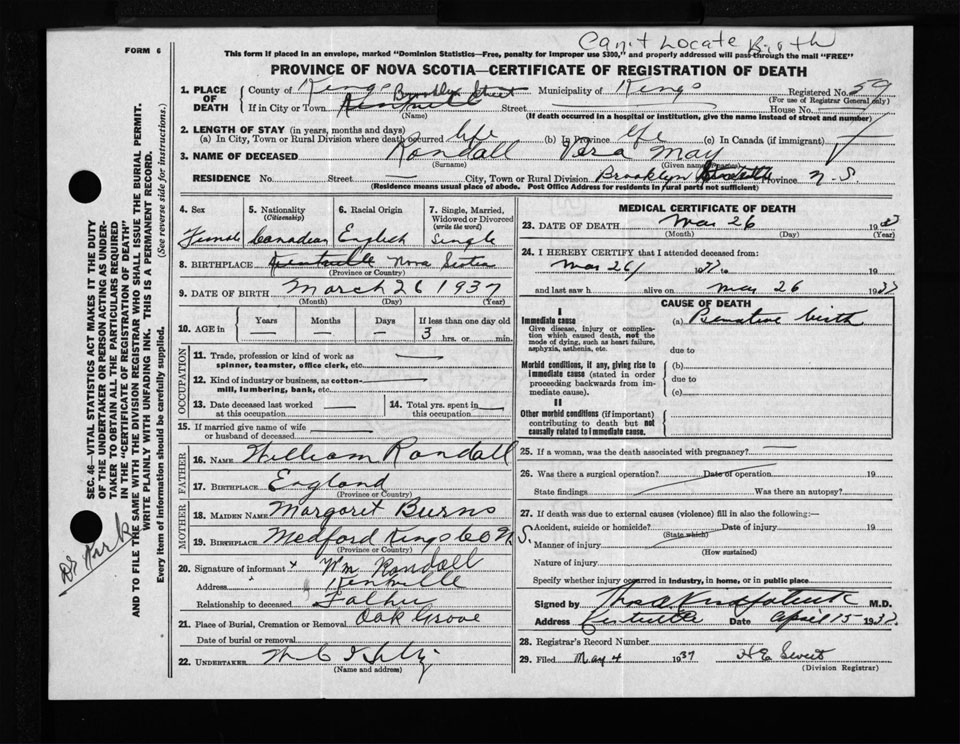 Can't Locate Birth
FORM 6
This form if placed in an envelope, marked "Dominion Statistics—Free, penalty for improper use $300," and properly addressed will pass through the mail "FREE"
PROVINCE OF NOVA SCOTIA—CERTIFICATE OF REGISTRATION OF DEATH
1. PLACE OF DEATH
County of Kings Municipality of Kings Registered No. 59
(For use of Registrar General only)
Brooklyn Street
If in City or Town Kentville Street House No.
(Name) (If death occurred in a hospital or institution, give the name instead of street and number)
2. LENGTH OF STAY (in years, months and days)
(a) In City, Town or Rural Division where death occurred life (b) In Province life (c) In Canada (if immigrant)
3. NAME OF DECEASED Randall Vera May
(Surname) (Given name)
RESIDENCE No. Street City, Town or Rural Division Brooklyn Province N.S.
(Residence means usual place of abode. Post Office Address for residents in rural parts not sufficient)
4. Sex 5. Nationality (Citizenship) 6. Racial Origin 7. Single, Married, Widowed or Divorced (write the word)
Female Canadian English Single
8. BIRTHPLACE Kentville Nova Scotia
(Province or Country)
9. DATE OF BIRTH March 26 1937
(Month) (Day) (Year)
10. AGE in Years Months Days If less than one day old
3 hrs. or min.
OCCUPATION
11. Trade, profession or kind of work as spinner, teamster, office clerk, etc.
12. Kind of industry or business, as cotton-mill, lumbering, bank, etc.
13. Date deceased last worked at this occupation 14. Total yrs. spent in this occupation
15. If married give name of wife or husband of deceased
FATHER
16. NAME William Randall
17. BIRTHPLACE England
(Province or Country)
MOTHER
18. MAIDEN NAME Margaret Burns
19. BIRTHPLACE Medford Kings Co N.S.
(Province or Country)
20. Signature of informant x Wm Randall
Address Kentville
Relationship to deceased Father
21. Place of Burial, Cremation or Removal Oak Grove
Date of burial or removal
22. UNDERTAKER
(Name and address)
MEDICAL CERTIFICATE OF DEATH
23. DATE OF DEATH Mar 26 1937
(Month) (Day) (Year)
24. I HEREBY CERTIFY that I attended deceased from:
Mar 26/ 1937 to 19
and last saw h alive on Mar 26 1937
CAUSE OF DEATH
I
Immediate cause
Give disease, injury or complication which caused death, not the mode of dying, such as heart failure, asphyxia, asthenia, etc.
(a) birth
due to
Morbid conditions, if any, giving rise to immediate cause (stated in order proceeding backwards from immediate cause).
(b)
due to
(c)
II
Other morbid conditions (if important) contributing to death but not causally related to immediate cause.
25. If a woman, was the death associated with pregnancy?
26. Was there a surgical operation? Date of operation 19
State findings Was there an autopsy?
27. If death was due to external causes (violence) fill in also the following:—
Accident, suicide or homicide? Date of injury 19
(State which)
Manner of injury
(How sustained)
Nature of injury
Specify whether injury occurred in industry, in home, or in public place
Signed by M.D.
Address Kentville Date April 15 1937
28. Registrar's Record Number
29. Filed May 4 1937 H E Sweet
(Division Registrar)
SEC. 46—VITAL STATISTICS ACT MAKES IT THE DUTY
OF THE UNDERTAKER OR PERSON ACTING AS UNDER-
TAKER TO OBTAIN ALL THE PARTICULARS REQUIRED
IN THE "CERTIFICATE OF REGISTRATION OF DEATH"
AND TO FILE THE SAME WITH THE DIVISION REGISTRAR WHO SHALL ISSUE THE BURIAL PERMIT.
WRITE PLAINLY WITH UNFADING INK. THIS IS A PERMANENT RECORD.
Every item of information should be carefully supplied. (See reverse side for instructions.)
Dr Kirk